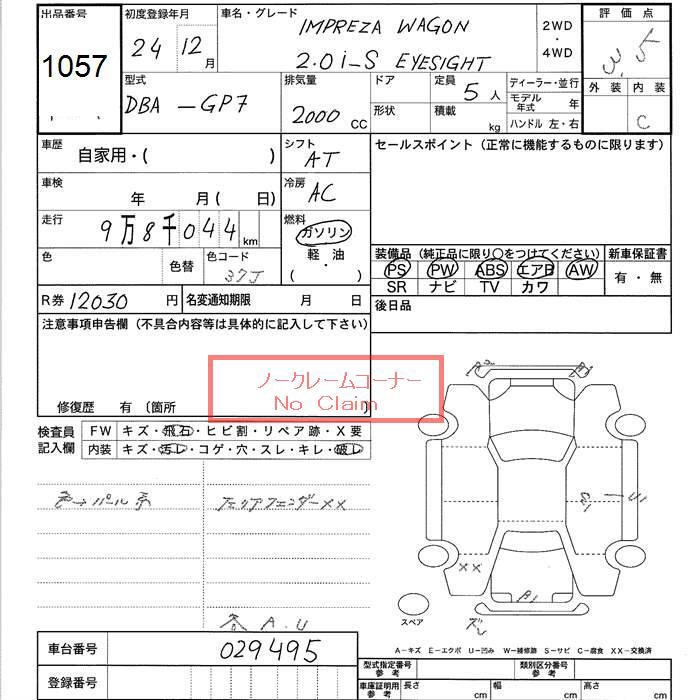 出品番号 初度登録年月 車名・グレード 評価点
1057 24 12月 IMPREZA WAGON 2WD・4WD 3.5
2.0i-S EYESIGHT
型式 排気量 ドア 定員 5人 ディーラー・並行 外装 内装
DBA -GP7 2000 CC 形状 積載 kg モデル年式 年 C
ハンドル 左・右
車歴 自家用・( ) シフト AT セールスポイント (正常に機能するものに限ります)
車検 年 月( 日) 冷房 AC
走行 9万8千044km 燃料 ガソリン
軽・油
( ・ )
色 色替 色コード 37J
装備品 (純正品に限り〇をつけてください) 新車保証書
PS PW ABS エアB AW 有・無
SR ナビ TV カワ
R券 12030 円 名変通知期限 月 日 後日品
注意事項申告欄 (不具合内容等は具体的に記入して下さい)
ノークレームコーナー
No Claim
修復歴 有 (箇所
検査員記入欄 FW キズ・飛石・ヒビ割・リペア跡・X要
内装 キズ・汚レ・コゲ・穴・スレ・キレ・破レ
色→パール系
XX
A1
スペア
A.U
A-キズ E-エクボ U-凹み W-補修跡 S-サビ C-腐食 XX-交換済
車台番号 029495
登録番号
型式指定番号 参考 類別区分番号 参考
車庫証明用 参考 長さ cm 幅 cm 高さ cm